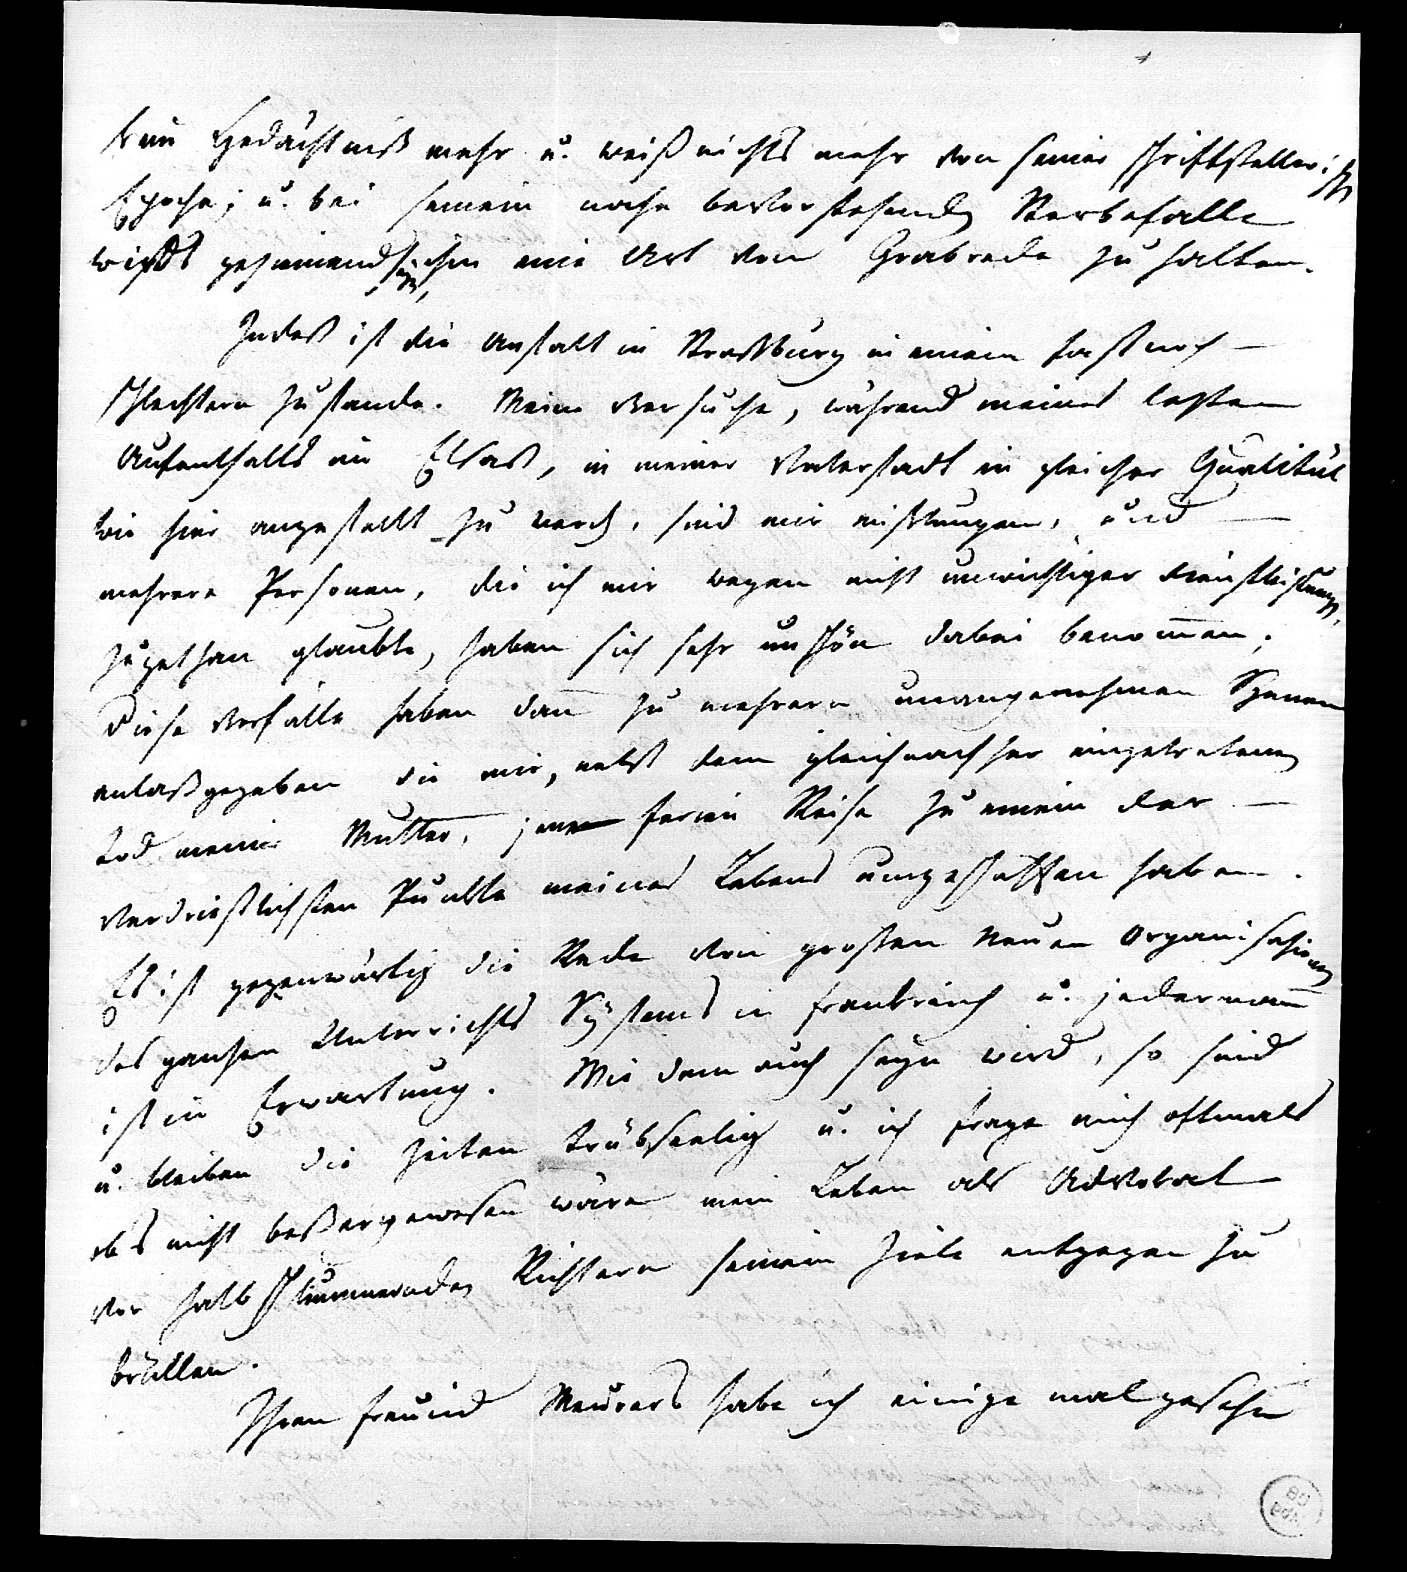 kein Gedächtniß mehr u. weiß nichts mehr von seiner schriftstellerisch
Epoche; u. bei seinem nahe bevorstehenden Sterbefalle
wirds geziemend seyn, ihm eine Art von Grabrede zu halten.
Indeß ist die Anstalt in Straßburg in einem fast noch
schlechtern Zustande. Meine Versuche, während meines letzten
Aufenthalts im Elsaß, in meiner Vaterstadt in gleicher Qualität
wie hier angestellt zu werden, sind mir mißlungen, und
mehrere Personen, die ich mir wegen nicht unwichtiger Dienstleistungen
zugethan glaubte, haben sich sehr unschön dabei benommen;
diese Vorfälle haben dann zu mehrern unangenehmen Szenen
anlaß gegeben die mir, nebst dem gleich nachher eingetretenen
Tod meiner Mutter, jene Ferien Reise zu einem der
verdrießlichsten Punkte meines Lebens umgeschaffen haben.
Es ist gegenwärtig die Rede von großen neuen Organisationen
des ganzen Unterrichts Systems in Frankreich u. jedermann
ist in Erwartung. Wie dem auch seyn wird, so sind
u. bleiben die Zeiten trübseelig u. ich frage mich oftmals
obs nicht beßer gewesen wäre mein Leben als Advokat
vor halb schlummernden Richtern seinem Ziele entgegen zu
brüllen.
Ihren Freund Meurers habe ich einige mal gesehen